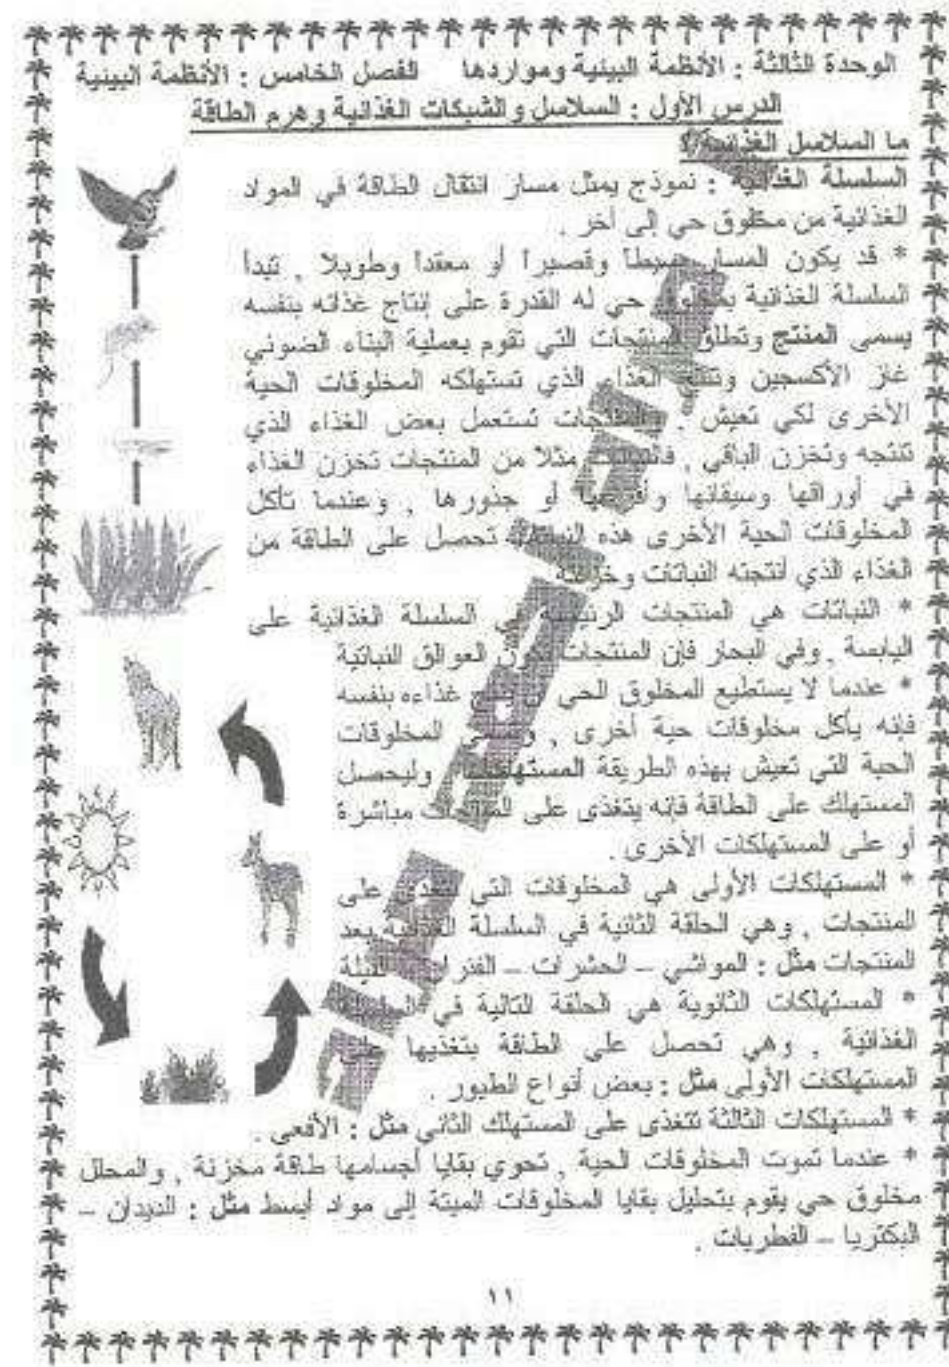 الوحدة الثالثة : الأنظمة البيئية ومواردها الفصل الخامس : الأنظمة البيئية
الدرس الأول : السلاسل والشبكات الغذائية وهرم الطاقة
ما السلاسل الغذائية ؟
السلسلة الغذائية : نموذج يمثل مسار انتقال الطاقة في المواد
الغذائية من مخلوق حي إلى أخر .
* قد يكون المسار بسيطا وقصيرا أو معقدا وطويلا , تبدأ
السلسلة الغذائية بمخلوق حي له القدرة على إنتاج غذائه بنفسه
يسمى المنتج وتطلق المنتجات التي تقوم بعملية البناء الضوئي
غاز الأكسجين وتنتج الغذاء الذي تستهلكه المخلوقات الحية
الأخرى لكي تعيش , والمنتجات تستعمل بعض الغذاء الذي
تنتجه وتخزن الباقي , فالنباتات مثلا من المنتجات تخزن الغذاء
في أوراقها وسيقانها وأفرعها أو جذورها , وعندما تأكل
المخلوقات الحية الأخرى هذه النباتات تحصل على الطاقة من
الغذاء الذي أنتجته النباتات وخزنته
* النباتات هي المنتجات الرئيسة في السلسلة الغذائية على
اليابسة , وفي البحار فإن المنتجات تكون العوالق النباتية
* عندما لا يستطيع المخلوق الحي أن ينتج غذاءه بنفسه
فإنه يأكل مخلوقات حية أخرى , وتسمى المخلوقات
الحية التي تعيش بهذه الطريقة المستهلكات , وليحصل
المستهلك على الطاقة فإنه يتغذى على المنتجات مباشرة
أو على المستهلكات الأخرى .
* المستهلكات الأولى هي المخلوقات التي تتغذى على
المنتجات , وهي الحلقة الثانية في السلسلة الغذائية بعد
المنتجات مثل : المواشي – الحشرات – الفئران – الفيلة
* المستهلكات الثانوية هي الحلقة التالية في السلسلة
الغذائية , وهي تحصل على الطاقة بتغذيها على
المستهلكات الأولى مثل : بعض أنواع الطيور .
* المستهلكات الثالثة تتغذى على المستهلك الثاني مثل : الأفعى .
* عندما تموت المخلوقات الحية , تحوي بقايا أجسامها طاقة مخزنة , والمحلل
مخلوق حي يقوم بتحليل بقايا المخلوقات الميتة إلى مواد أبسط مثل : الديدان –
البكتريا – الفطريات .
١١